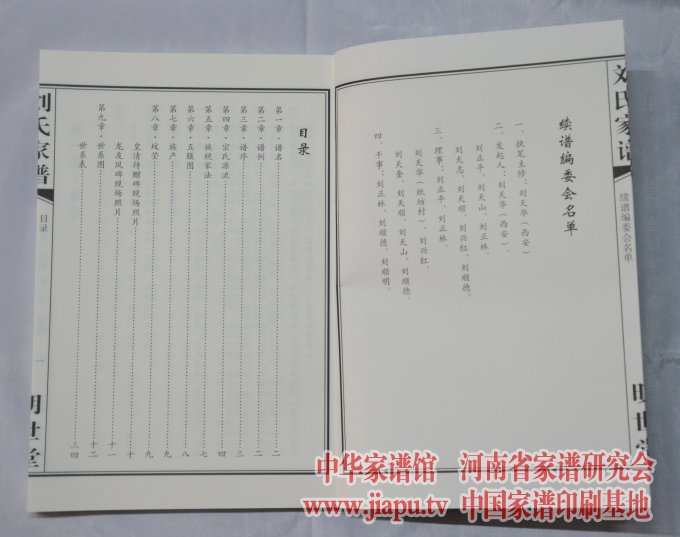 刘氏家谱
续谱编委会名单
明世堂
续谱编委会名单
一、执笔主修：刘天华（西安）
二、发起人：刘天华（西安）、
刘正平、刘天山、刘正林、
刘天志、刘天顺、刘兴红、刘顺德。
三、理事：刘正平、刘正林、
刘天华（纸坊村）、刘兴红、
刘天奎、刘天顺、刘天山、刘顺德。
四、干事：刘正林、刘顺德、刘顺明。
目录
第一章·谱名 二
第二章·谱例 二
第三章·谱序 三
第四章·宗氏源流 四
第五章·族规家法 七
第六章·五服图 八
第七章·族产 九
第八章·坟茔 九
皇清待赠碑现场照片 十
龙友凤碑现场照片 十一
第九章·世系图 十二
世系表 三四
刘氏家谱
目录
一
明世堂
中华家谱馆 河南省家谱研究会
www.jiapu.tv 中国家谱印刷基地